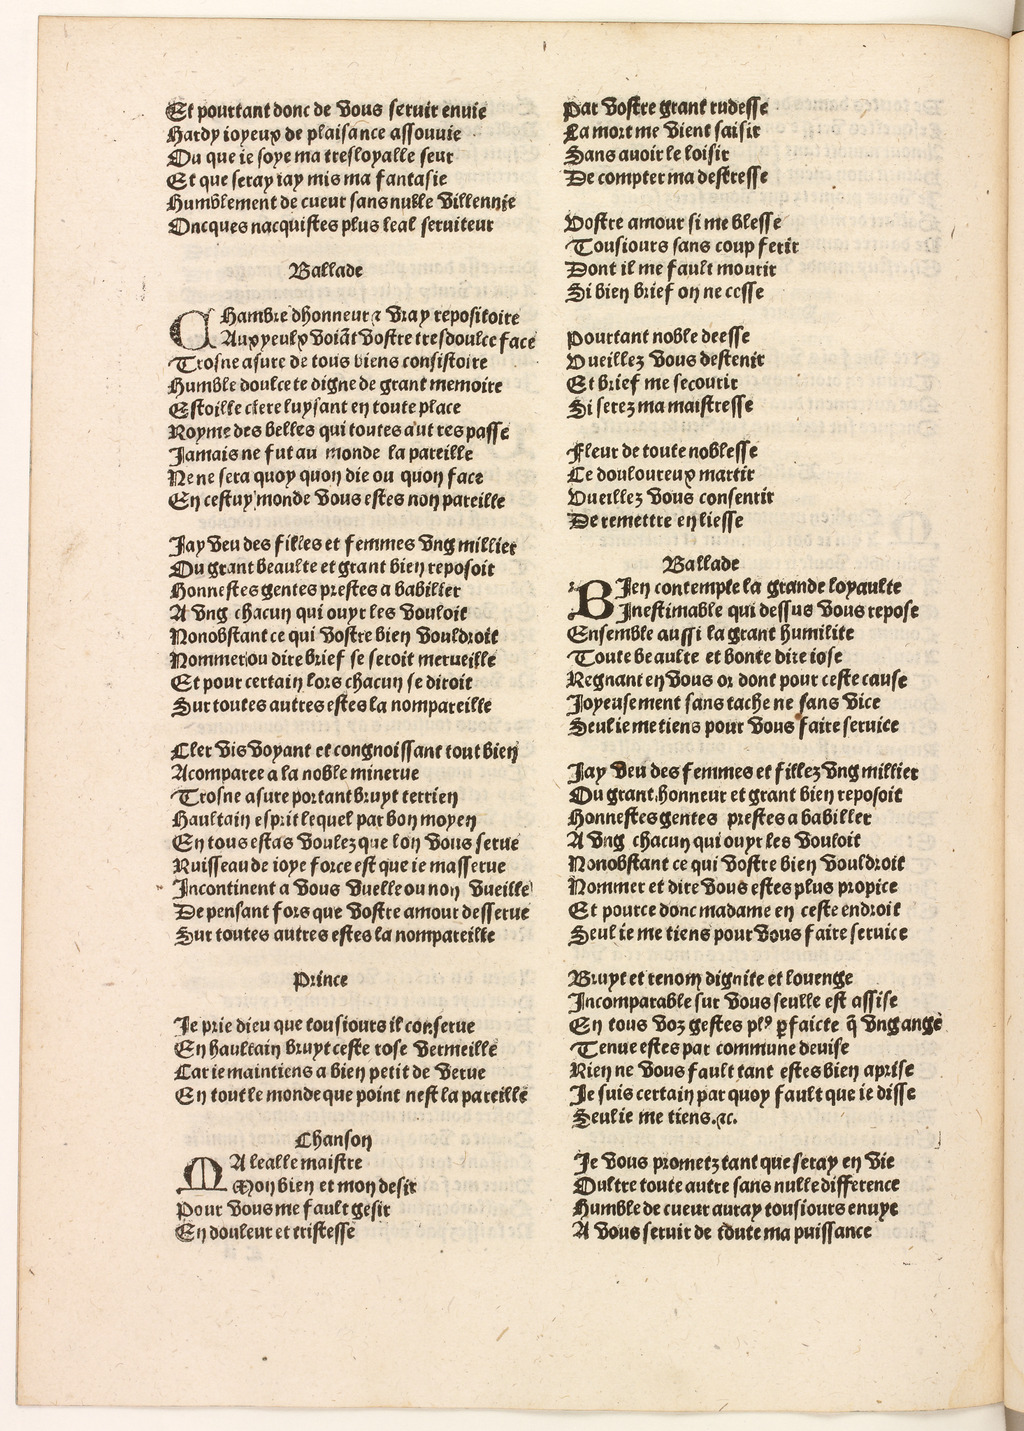 Et pourtant donc de vous seruir enuie
Hardy ioyeux de plaisance assouuie
Ou que ie soye ma tresloyalle seur
Et que seray iay mis ma fantasie
Humblement de cueur sans nulle villennie
Oncques nacquistes plus leal seruiteur
Ballade
CHambre dhonneur ⁊ vray repositoire
Aux yeulx voiāt vostre tresdoulce face
Trosne asure de tous biens consistoire
Humble doulcete digne de grant memoire
Estoille clere luysant en toute place
Royme des belles qui toutes autres passe
Jamais ne fut au monde la pareille
Ne ne sera quoy quon die ou quon face
En cestuy monde vous estes non pareille
Jay veu des filles et femmes vng millier
Ou grant beaulte et grant bien reposoit
Honnestes gentes prestes a babiller
A vng chacun qui ouyr les vouloit
Nonobstant ce qui vostre bien vouldroit
Nommer ou dire brief se seroit merueille
Et pour certain lors chacun se diroit
Sur toutes autres estes la nompareille
Cler vis voyant et congnoissant tout bien
Acomparee a la noble minerue
Trosne asure portant bruyt terrien
Haultain esprit lequel par bon moyen
En tous estas voulez que lon vous serue
Ruisseau de ioye force est que ie masserue
Incontinent a vous vuelle ou non vueille
De pensant fors que vostre amour desserue
Sur toutes autres estes la nompareille
Prince
Je prie dieu que tousiours il conserue
En haultain bruyt ceste rose vermeille
Car ie maintiens a bien petit de verue
En tout le monde que point nest la pareille
Chanson
MA lealle maistre
Mon bien et mon desir
Pour vous me fault gesir
En douleur et tristesse
Par vostre grant rudesse
La mort me vient saisir
Sans auoir le loisir
De compter ma destresse
Vostre amour si me blesse
Tousiours sans coup ferir
Dont il me fault mourir
Si bien brief on ne cesse
Pourtant noble deesse
Vueillez vous destenir
Et brief me secourir
Si serez ma maistresse
Fleur de toute noblesse
Ce douloureux martir
Vueillez vous consentir
De remettre en liesse
Ballade
BIen contemple la grande loyaulte
Inestimable qui dessus vous repose
Ensemble aussi la grant humilite
Toute beaulte et bonte dire iose
Regnant en vous or dont pour ceste cause
Joyeusement sans tache ne sans vice
Seul ie me tiens pour vous faire seruice
Jay veu des femmes et fillez vng millier
Ou grant honneur et grant bien reposoit
Honnestes gentes prestes a babiller
A vng chacun qui ouyr les vouloit
Nonobstant ce qui vostre bien vouldroit
Nommer et dire vous estes plus propice
Et pource donc madame en ceste endroit
Seul ie me tiens pour vous faire seruice
Bruyt et renom dignite et louenge
Incomparable sur vous seulle est assise
En tous voz gestes plꝰ ꝑfaicte q̄ vng ange
Tenue estes par commune deuise
Rien ne vous fault tant estes bien aprise
Je suis certain par quoy fault que ie disse
Seul ie me tiens.⁊c.
Je vous prometz tant que seray en vie
Oultre toute autre sans nulle difference
Humble de cueur auray tousiours enuye
A vous seruir de toute ma puissance